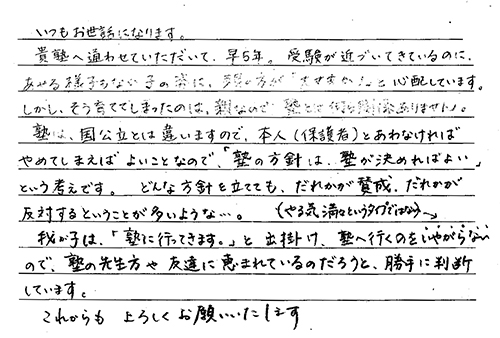 いつもお世話になります。
貴塾へ通わせていただいて、早5年。受験が近づいてきているのに、
あせる様子もない子の姿に、親の方が と心配しています。
しかし、そう育ててしまったのは、親なので 塾とは何も関係ありません。
塾は、国公立とは違いますので、本人(保護者)とあわなければ
やめてしまえばよいことなので、「塾の方針は、塾が決めればよい」
という考えです。どんな方針を立てても、だれかが賛成、だれかが
反対するということが多いような…。(やる気満々というタイプではなく)
我が子は、「塾に行ってきます。」と出掛け、塾へ行くのをいやがらない
ので、塾の先生方や友達に恵まれているのだろうと、勝手に判断
しています。
これからも よろしくお願いいたします